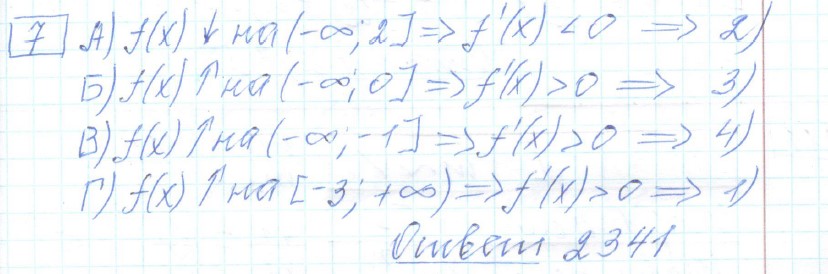 7 А) f(x) ↓ на (-∞; 2] => f'(x) < 0 => 2)
Б) f(x) ↑ на (-∞; 0] => f'(x) > 0 => 3)
В) f(x) ↑ на (-∞; -1] => f'(x) > 0 => 4)
Г) f(x) ↑ на [-3; +∞) => f'(x) > 0 => 1)
Ответ 2341